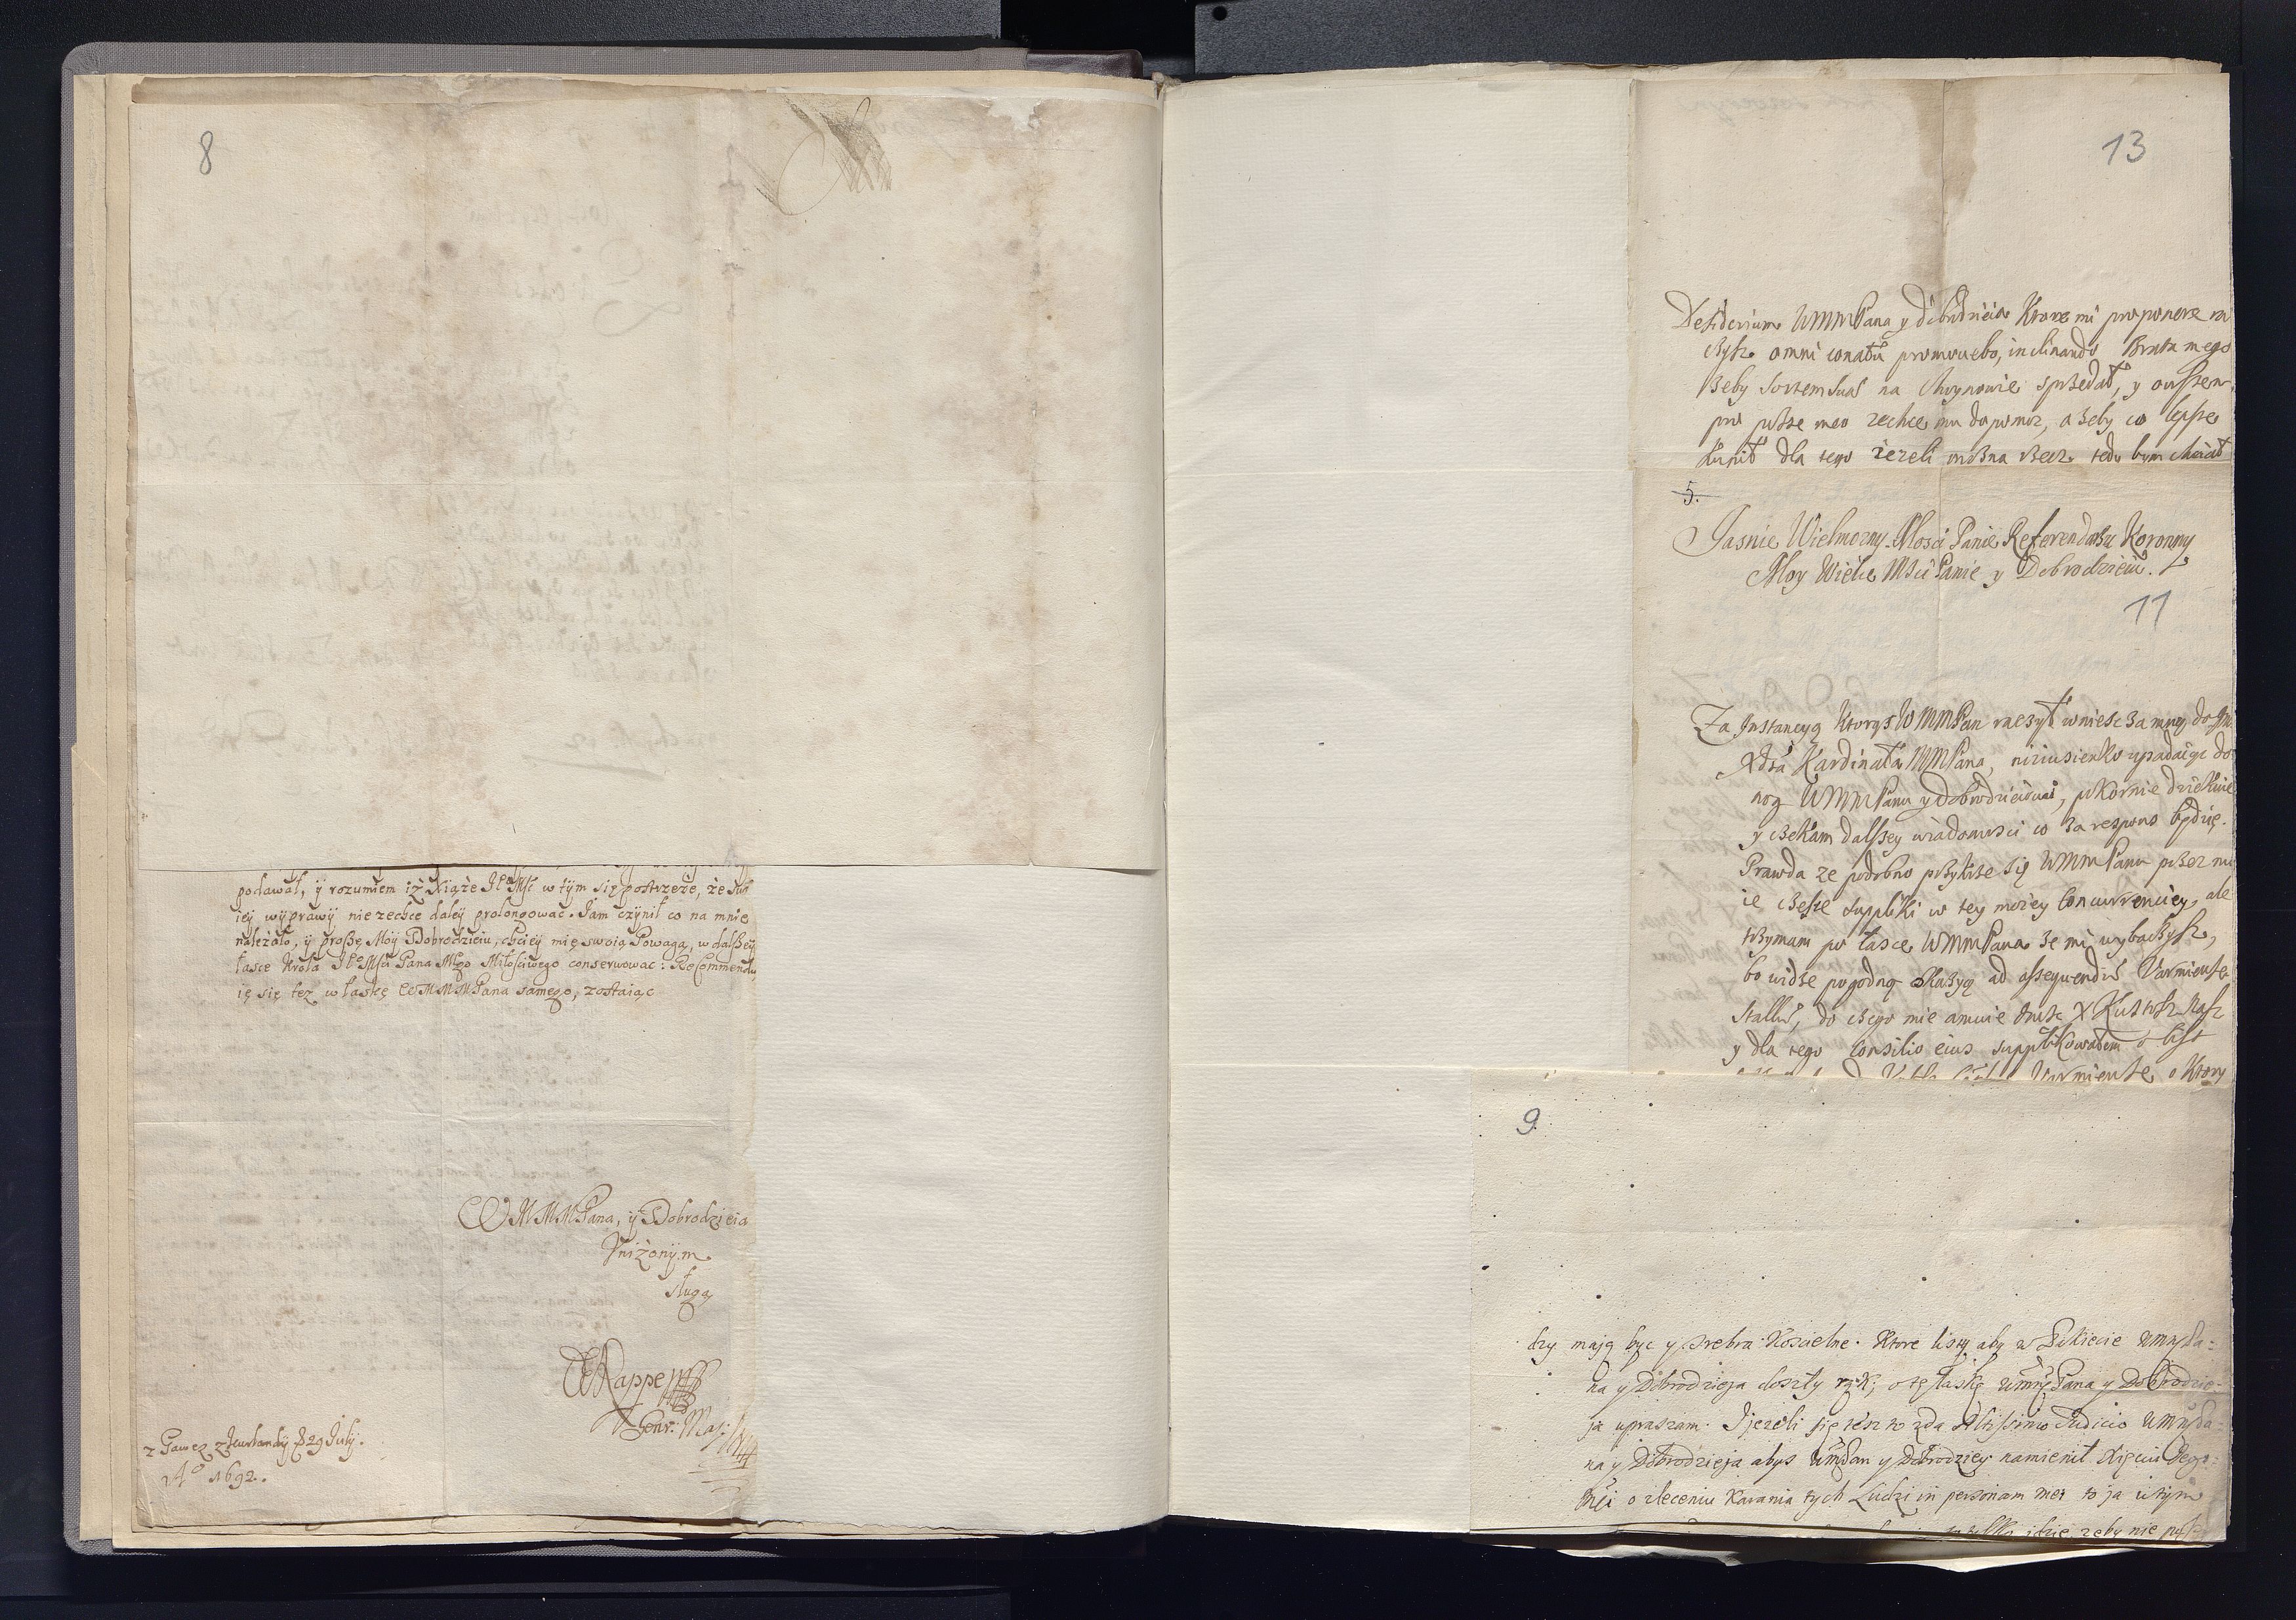 8
podawał, ÿ rozumiem iż Xiąże JeMść w tÿm się postrzeże, że
ieÿ wÿprawÿ nie zechce daleÿ prolongowac. Jam czÿnił co na mnie
należało, ÿ proszę Moÿ Dobrodzieiu, chcieÿ mię swoią Powagą, w dalszeÿ
łasce Krola JeMści Pana Mego Miłościwego conserwowac: Recommendu
ię się też w łaskę WMMMPana samego, zostaiąc
WMMMPana, ÿ Dobrodzieia
Vniżonÿm
sługą
Rappe
Genr: Maj:
z Gawez z Kurlandÿ d 29 Julÿ.
Aº 1692.
13
Desiderium WMMPana y dobrodzieia ktore mi proponere ra
czysz omni conatu promouebo, inclinando Brata mego
zeby sortem suas na Chrynowie sprzedał, y
pro posse meo zechce mu dopomoz, azeby co lepsze
kupił dla tego iezeli mozna rzecz tedy bym chciał
5.
Jasnie Wielmozny Mosci Panie Referendarzu Koronny
Moy Wielce Msci Panie y Dobrodzieiu.
11
Za Instancyą ktorąs WMMPan raczył wniesc za mną do
Xdza Kardinała MMPana, niziusienko upadaiąc do
nog WMMPanu y dobrodzieiowi, pokornie dziekuie
y czekam dalszey wiadomosci co za respons będzie.
Prawda ze podobno przykrze się WMMPanu przez mo
ie częste suppliki w tey moiey concurrenciey, ale
trzymam po łasce WMMPana ze mi wybaczysz,
bo widze pogodną okazyą ad assequendũ Varmiense
Stallũ, do czego mie animuie X Kustosz
y dla tego consilio eius supplikowałem o list
Varmiense, o ktory
9
dzy mają byc y srebra Koscielne. Ktore listy aby w Pakiecie
na y Dobrodzieja doszły rąk; o tę łaskę Pana y Dobrodzie-
ja upraszam. Jjezeli się tesz to zda Altissimo Iudicio
na y Dobrodzieja abys y Dobrodziey namienił Xięciu Jego
Msci o zleceniu karania tych Ludzi in personam mei to ja
idzie, zeby nie